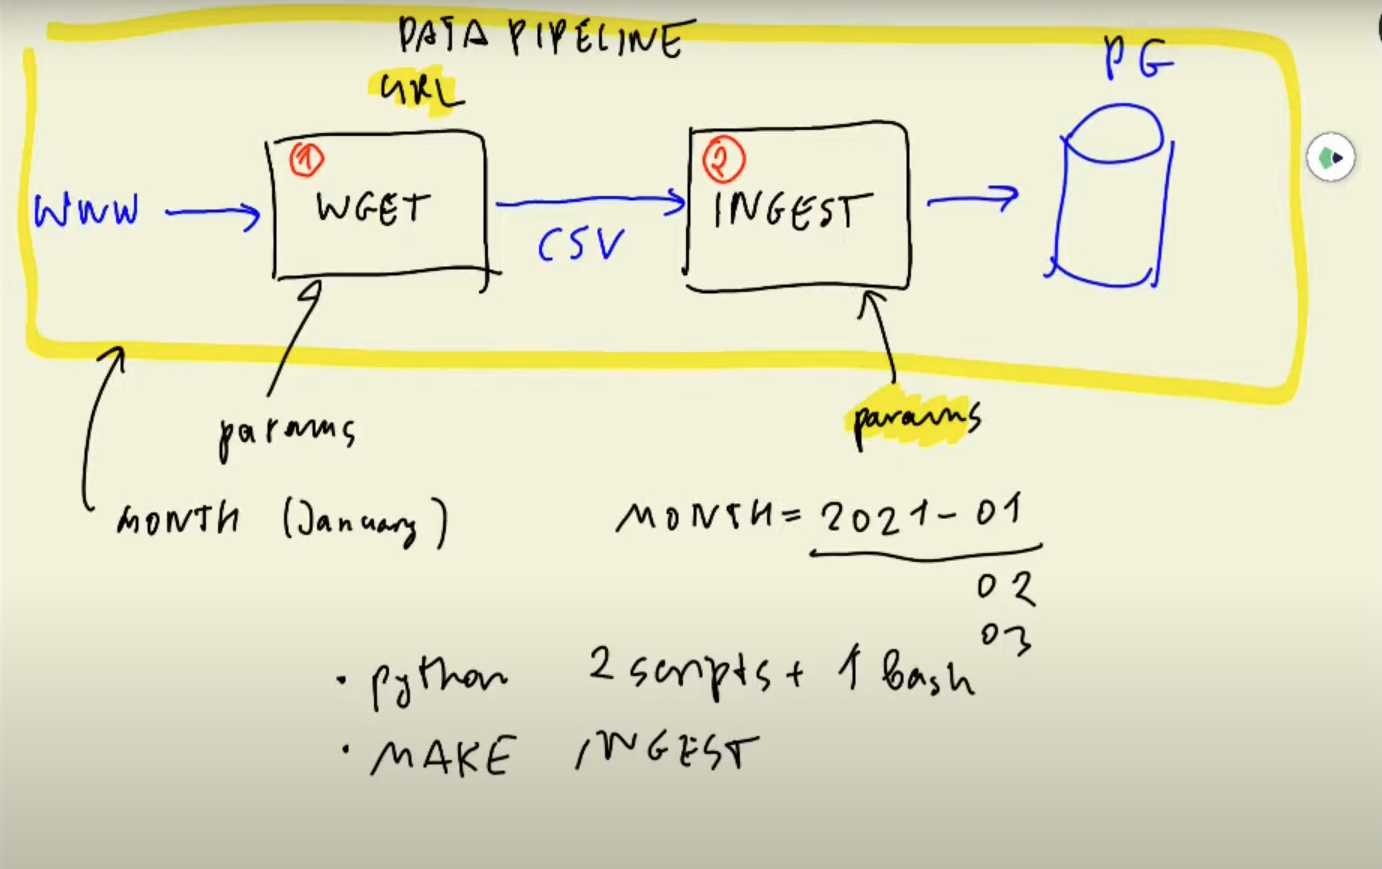 DATA PIPELINE
URL
PG
WWW
1
WGET
CSV
2
INGEST
params
params
MONTH (January)
MONTH = 2021-01
02
03
• python 2 scripts + 1 bash
• MAKE INGEST